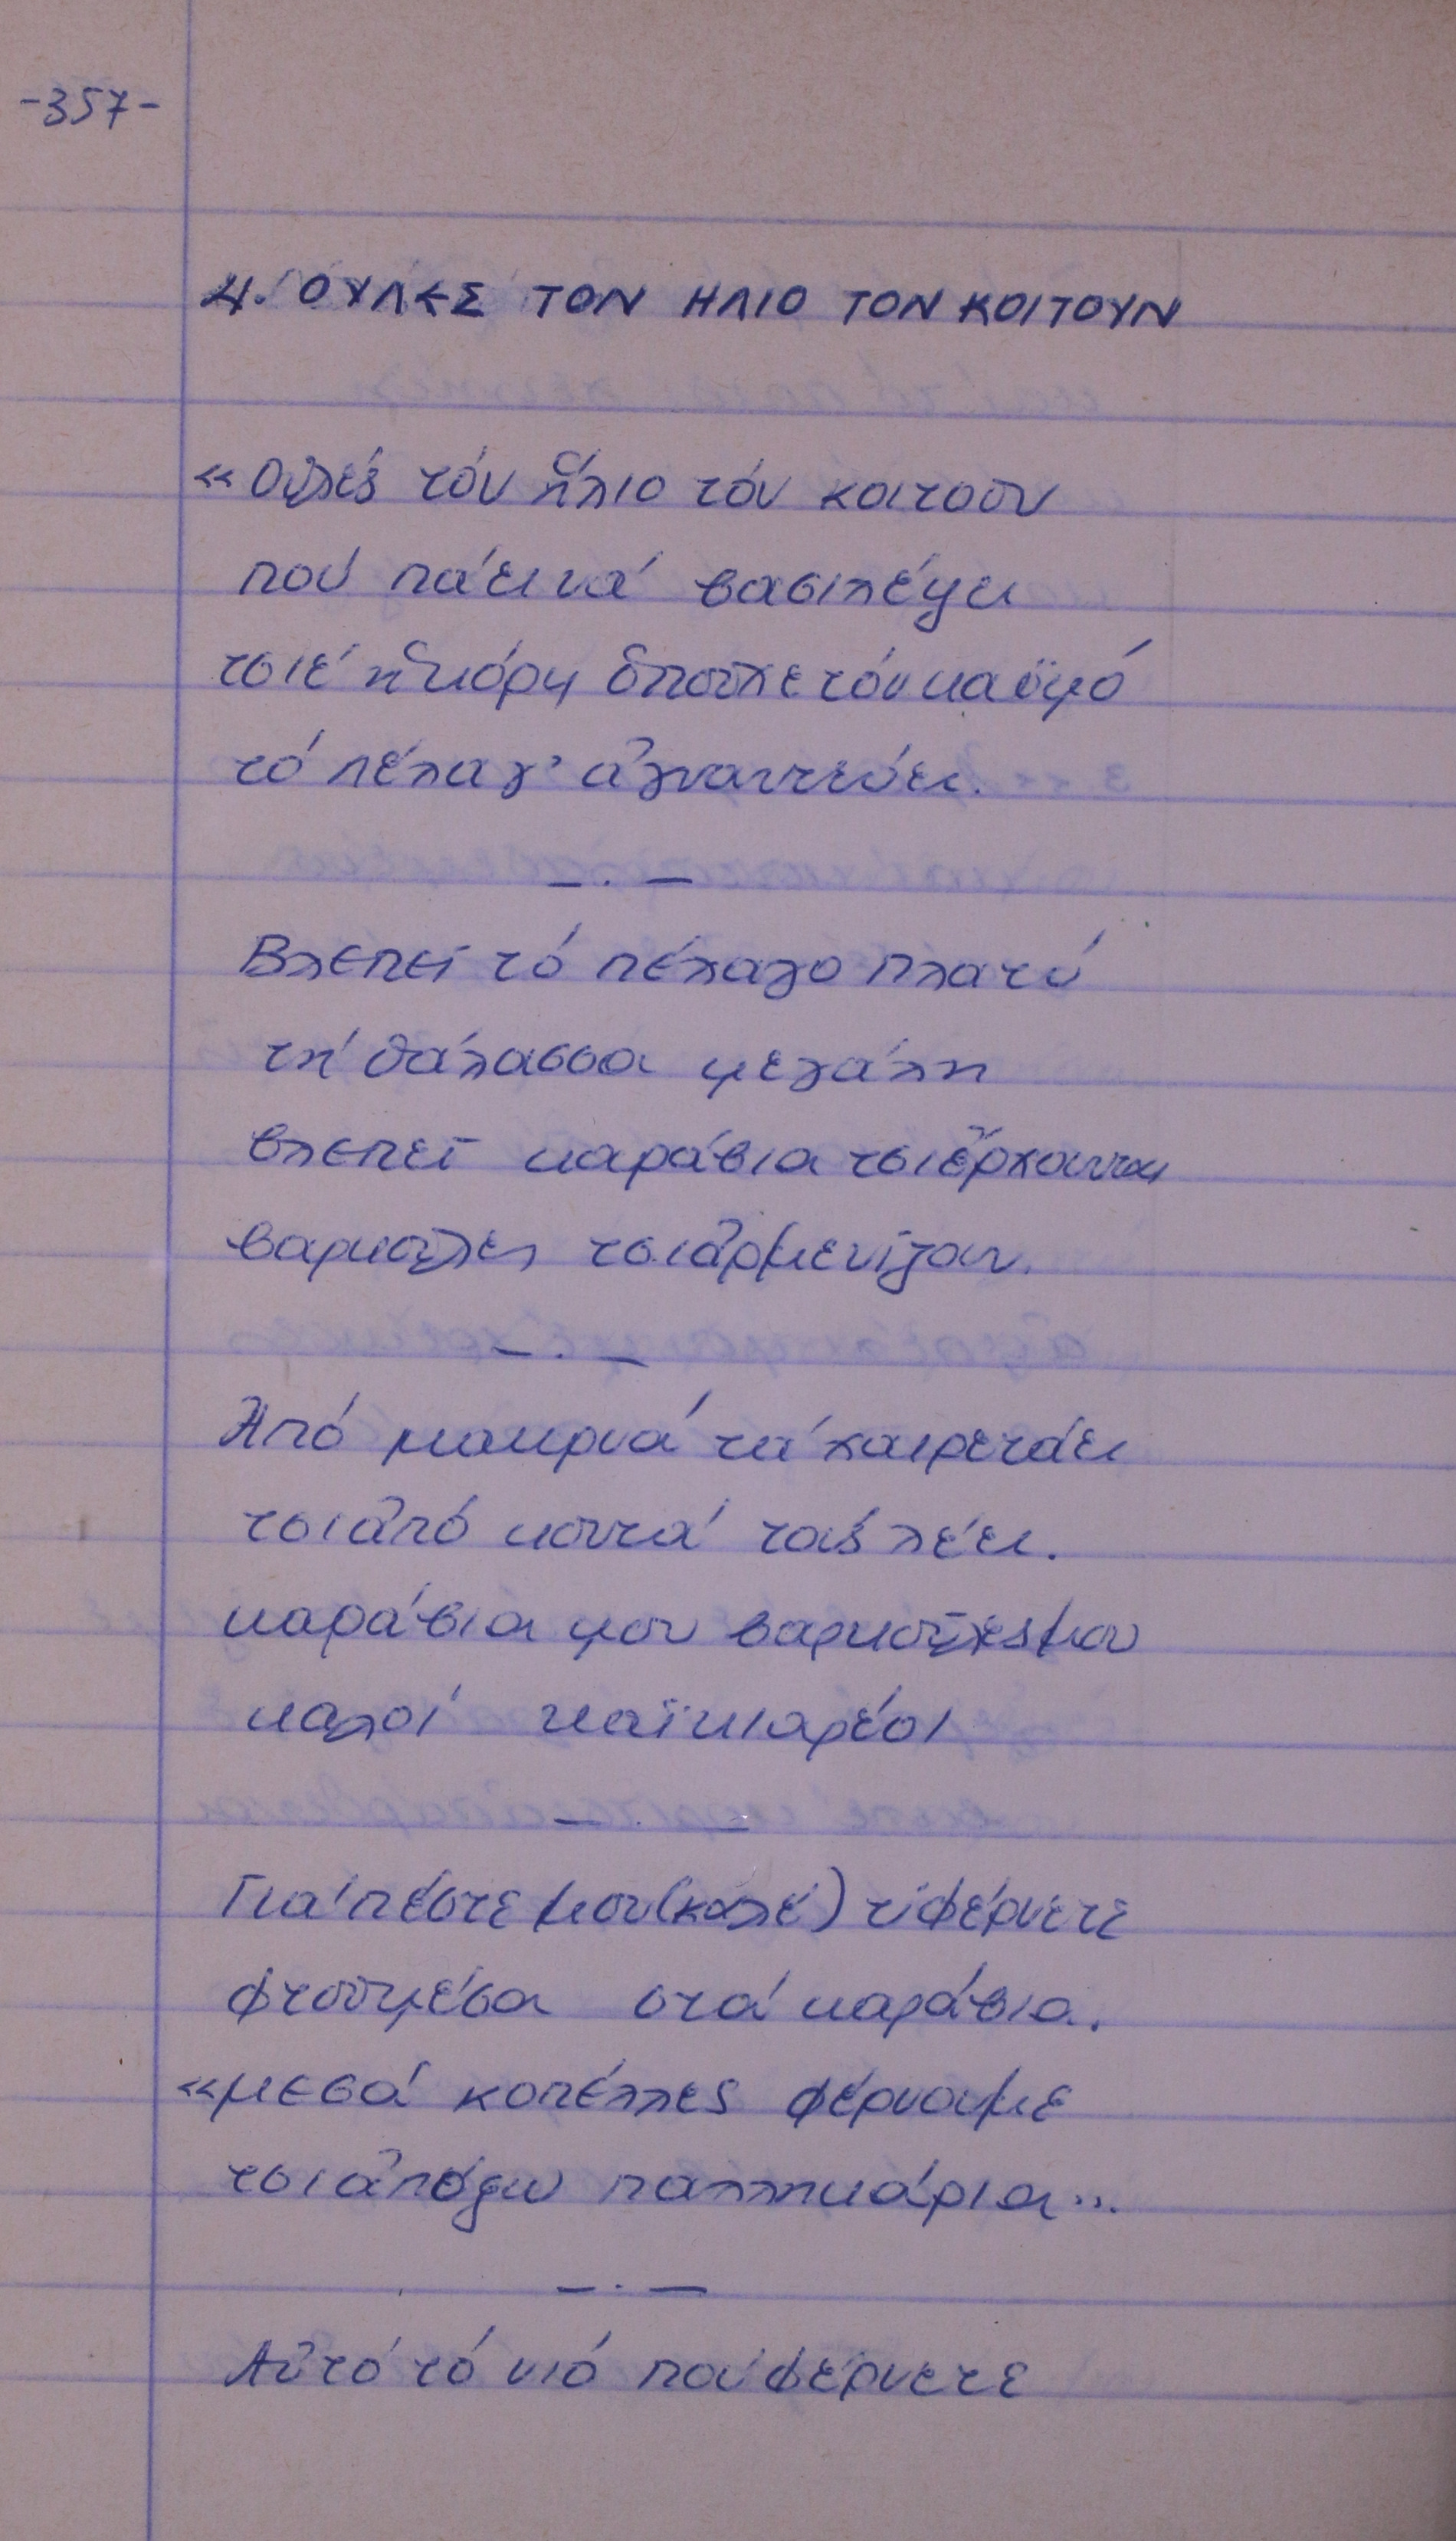 -357-
4. ΟΥΛΕΣ ΤΟΝ ΗΛΙΟ ΤΟΝ ΚΟΙΤΟΥΝ
«Οὖλές τόν ἥλιο τόν κοιτοῦν
πού πάει νά βασιλέψει
τσιέ ἡ κόρη ὁποὖχε τόν καϋμό
τό πέλαγ' ἀγναντεύει.
— . —
Βλέπει τό πέλαγο πλατύ
τή θάλασσα μεγάλη
βλέπει καράβια τσιἔρχονται
βαρκοῦλες τσιἀρμενίζουν.
— . —
Ἀπό μακρυά τά χαιρετάει
τσιἀπό κοντά τούς λέει.
καράβια μου βαρκοῦλες μου
καλοί καϊκιαρέοι
— . —
Γιά πέστε μου (καλέ) τί φέρνετε
φτοῦ μέσα στά καράβια.
«μεσά κοπέλλες φέρναμε
τσιἀπόξω παλληκάρια...
— . —
Αὐτό τό νιό πού φέρνετε